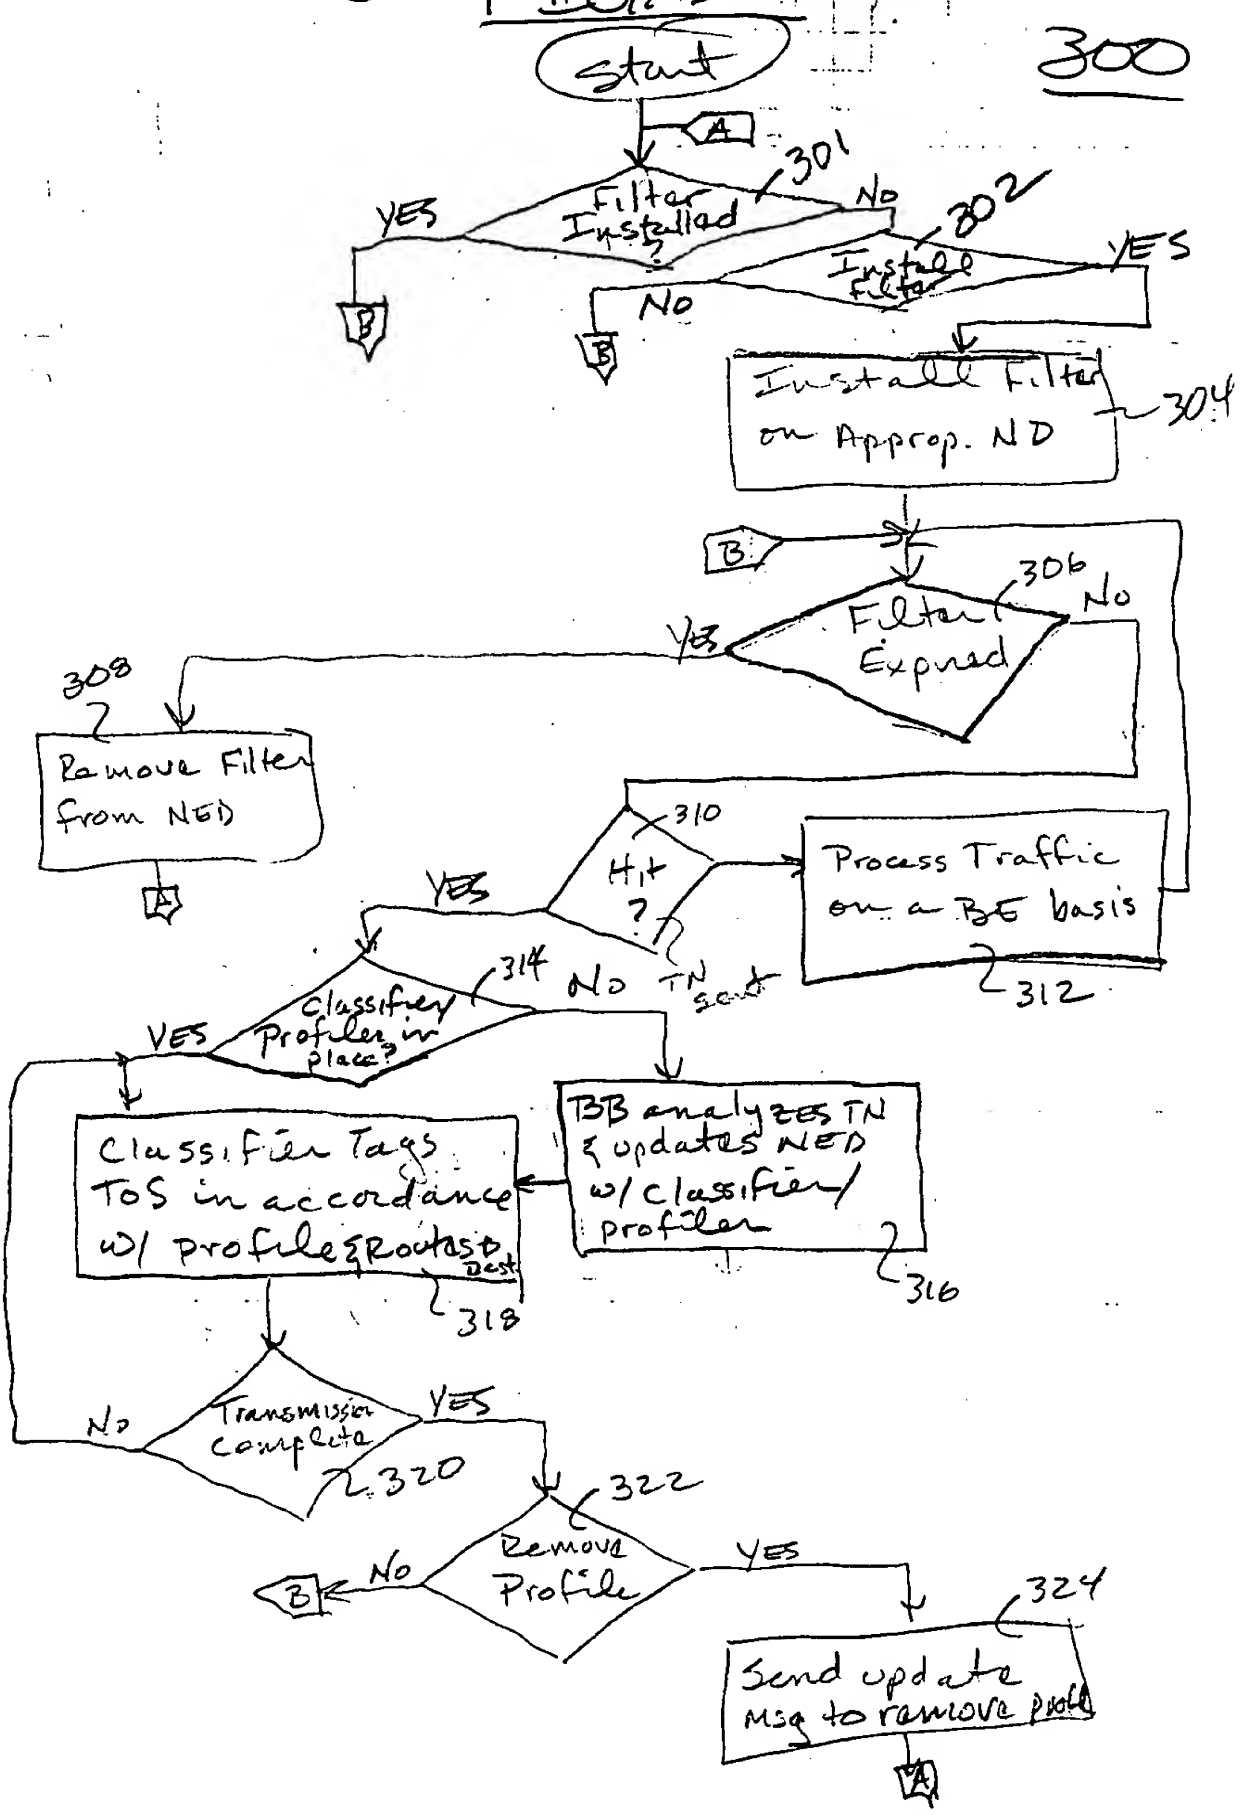 300
Start
A
301
Filter
Installed
?
YES
No
302
Install
Filter
YES
No
B
B
Install Filter
on Approp. ND
304
B
306
Filter
Expired
YES
No
308
Remove Filter
from NED
A
310
Hit
?
YES
TN
sent
Process Traffic
on a BE basis
312
314
Classifier/
Profiler in
place?
YES
No
BB analyzes TN
& updates NED
w/ classifier/
profiler
316
Classifier Tags
ToS in accordance
w/ profile & Routes to
Dest
318
Transmission
Complete
No
YES
320
322
Remove
Profile
No
B
YES
324
Send update
Msg to remove
A